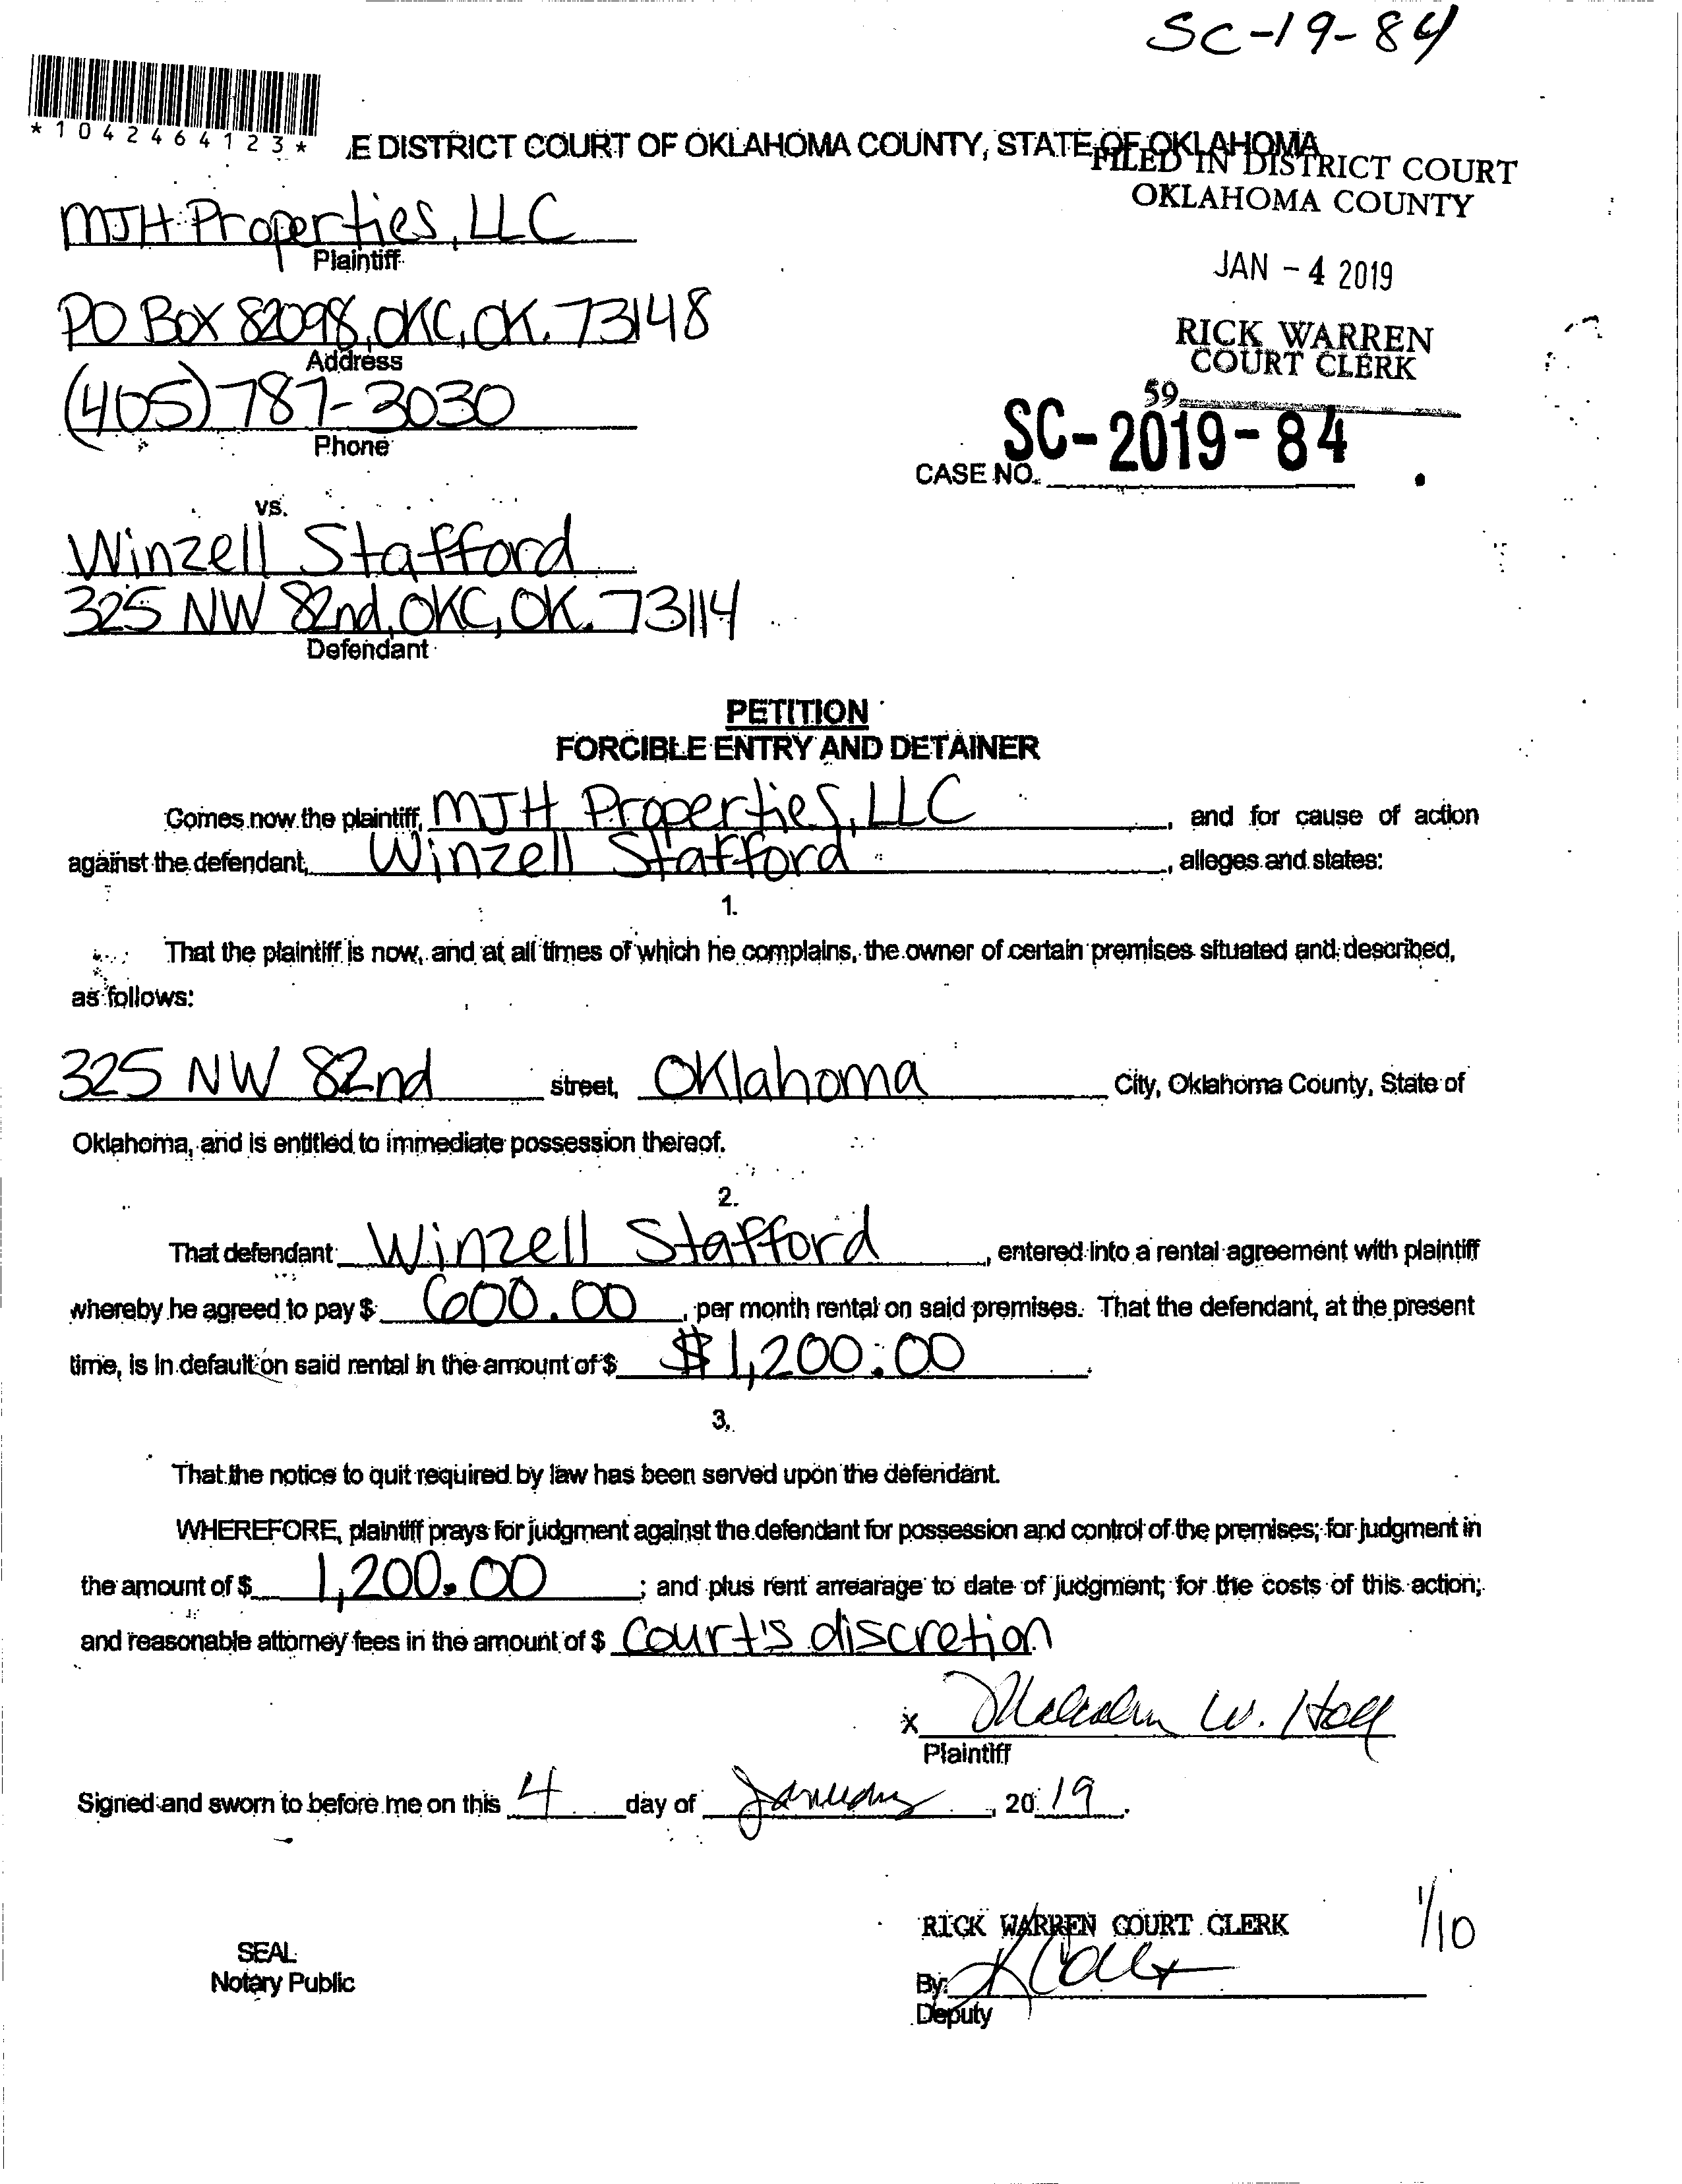 SC-19-84
*1042464123*
E DISTRICT COURT OF OKLAHOMA COUNTY, STATE OF OKLAHOMA
FILED IN DISTRICT COURT
OKLAHOMA COUNTY
MJH Properties, LLC
Plaintiff
JAN - 4 2019
PO Box 82098, OKC, OK. 73148
Address
RICK WARREN
COURT CLERK
(405) 787-3030
Phone
59
SC-2019-84
CASE NO.
vs.
Winzell Stafford
325 NW 82nd, OKC, OK. 73114
Defendant
PETITION
FORCIBLE ENTRY AND DETAINER
Comes now the plaintiff, MJH Properties, LLC, and for cause of action
against the defendant, Winzell Stafford, alleges and states:
1.
That the plaintiff is now, and at all times of which he complains, the owner of certain premises situated and described,
as follows:
325 NW 82nd street, Oklahoma City, Oklahoma County, State of
Oklahoma, and is entitled to immediate possession thereof.
2.
That defendant Winzell Stafford, entered into a rental agreement with plaintiff
whereby he agreed to pay $ 600.00, per month rental on said premises. That the defendant, at the present
time, is in default on said rental in the amount of $ $1,200.00.
3.
That the notice to quit required by law has been served upon the defendant.
WHEREFORE, plaintiff prays for judgment against the defendant for possession and control of the premises; for judgment in
the amount of $ 1,200.00; and plus rent arrearage to date of judgment; for the costs of this action;
and reasonable attorney fees in the amount of $ Court's discretion
x Malcolm W. Hall
Plaintiff
Signed and sworn to before me on this 4 day of January, 2019.
RICK WARREN COURT CLERK
1/10
SEAL
Notary Public
By:
Deputy